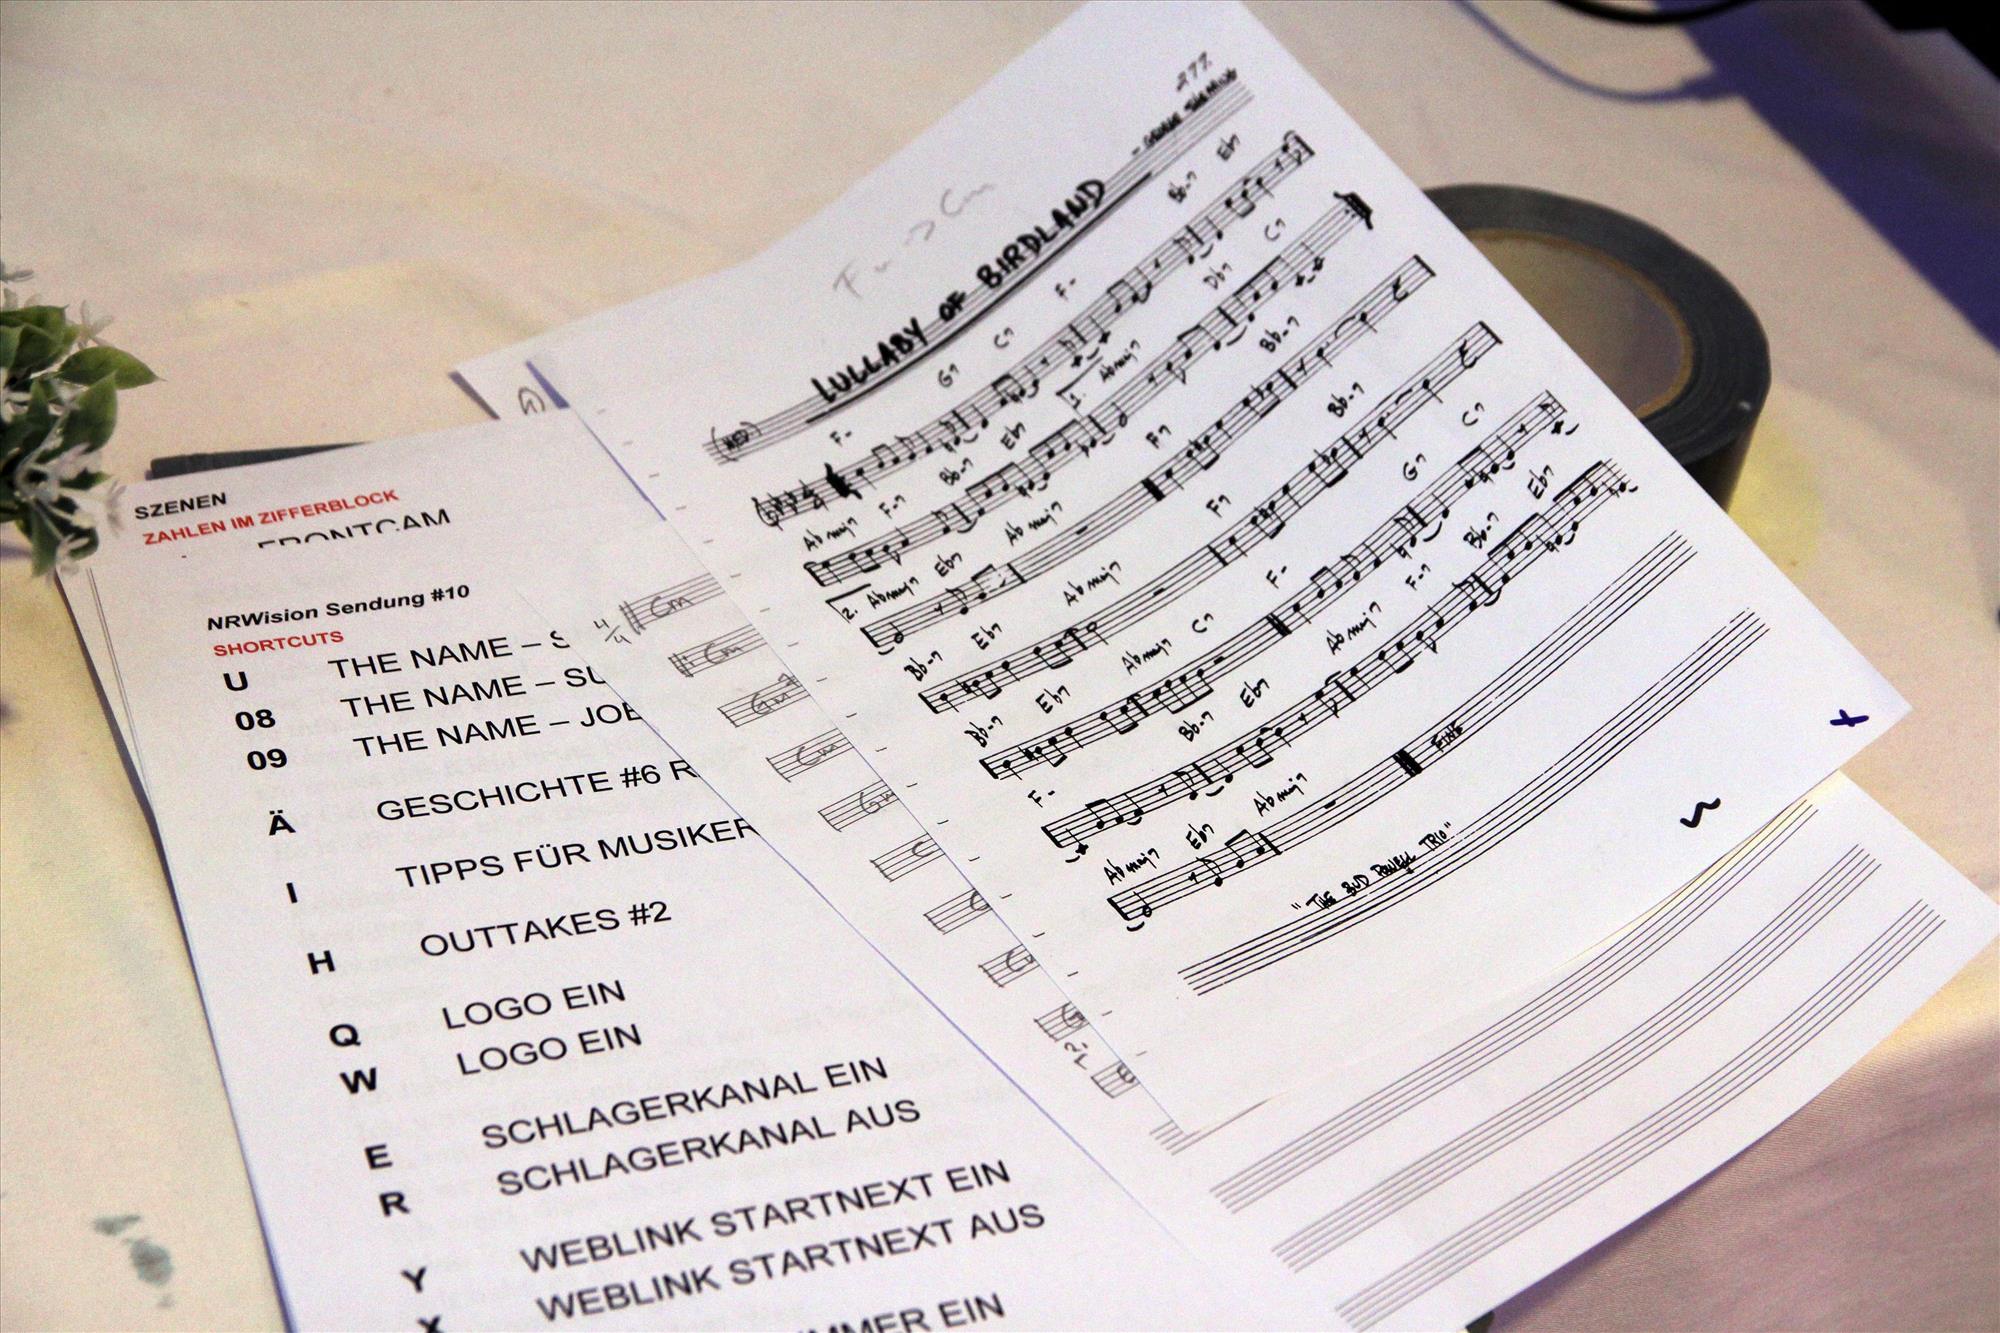 SZENEN
ZAHLEN IM ZIFFERBLOCK
FRONTCAM
NRWision Sendung #10
SHORTCUTS
U THE NAME – S
08 THE NAME – SU
09 THE NAME – JOE
Ä GESCHICHTE #6 R
I TIPPS FÜR MUSIKER
H OUTTAKES #2
Q LOGO EIN
W LOGO EIN
E SCHLAGERKANAL EIN
R SCHLAGERKANAL AUS
Y WEBLINK STARTNEXT EIN
X WEBLINK STARTNEXT AUS
MMER EIN
277.
Cm
(MED.) LULLABY OF BIRDLAND
F- G7 C7 F- Bb-7 Eb7
Abmaj7 F-7 Bb-7 Eb7 1. Abmaj7 Db7 C7
2. Abmaj7 Eb7 Abmaj7 F7 Bb-7
Bb-7 Eb7 Abmaj7 F7 Bb-7
Bb-7 Eb7 Abmaj7 C7 F- G7 C7
F- Bb-7 Eb7 Abmaj7 F-7 Bb-7 Eb7
Abmaj7 Eb7 Abmaj7 FINE
"THE BUD POWELL TRIO"
4/4 Cm
Cm
Gm7
Cm
Gm
C
C
G